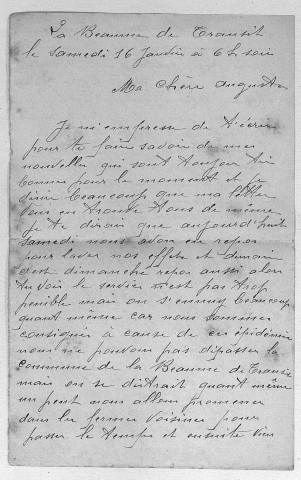 La Beaume de Transit
le samedi 16 Janvier à 6 h soir
Ma chère Augusta
Je m'empresse de t'écrire
pour te faire savoir de mes
nouvelles qui sont toujour très
bonnes pour le moment et je
désire beaucoup que ma lettre
vous en trouve tous de même
je te dirais que aujourd'huit
samedi nous avon eu repos
pour laver nos effets et demain
c'est dimanche repos aussi alors
tu vois le service n'est pas trop
penible mais on s'ennuy beaucoup
quant même car nous sommes
consignés à cause de ces épidémie
nous ne pouvon pas dépasser la
commune de la Beaume de Transit
mais on se distrait quant même
un peut nous allons promener
dans les fermes voisines pour
passer le temps et ensuite vien